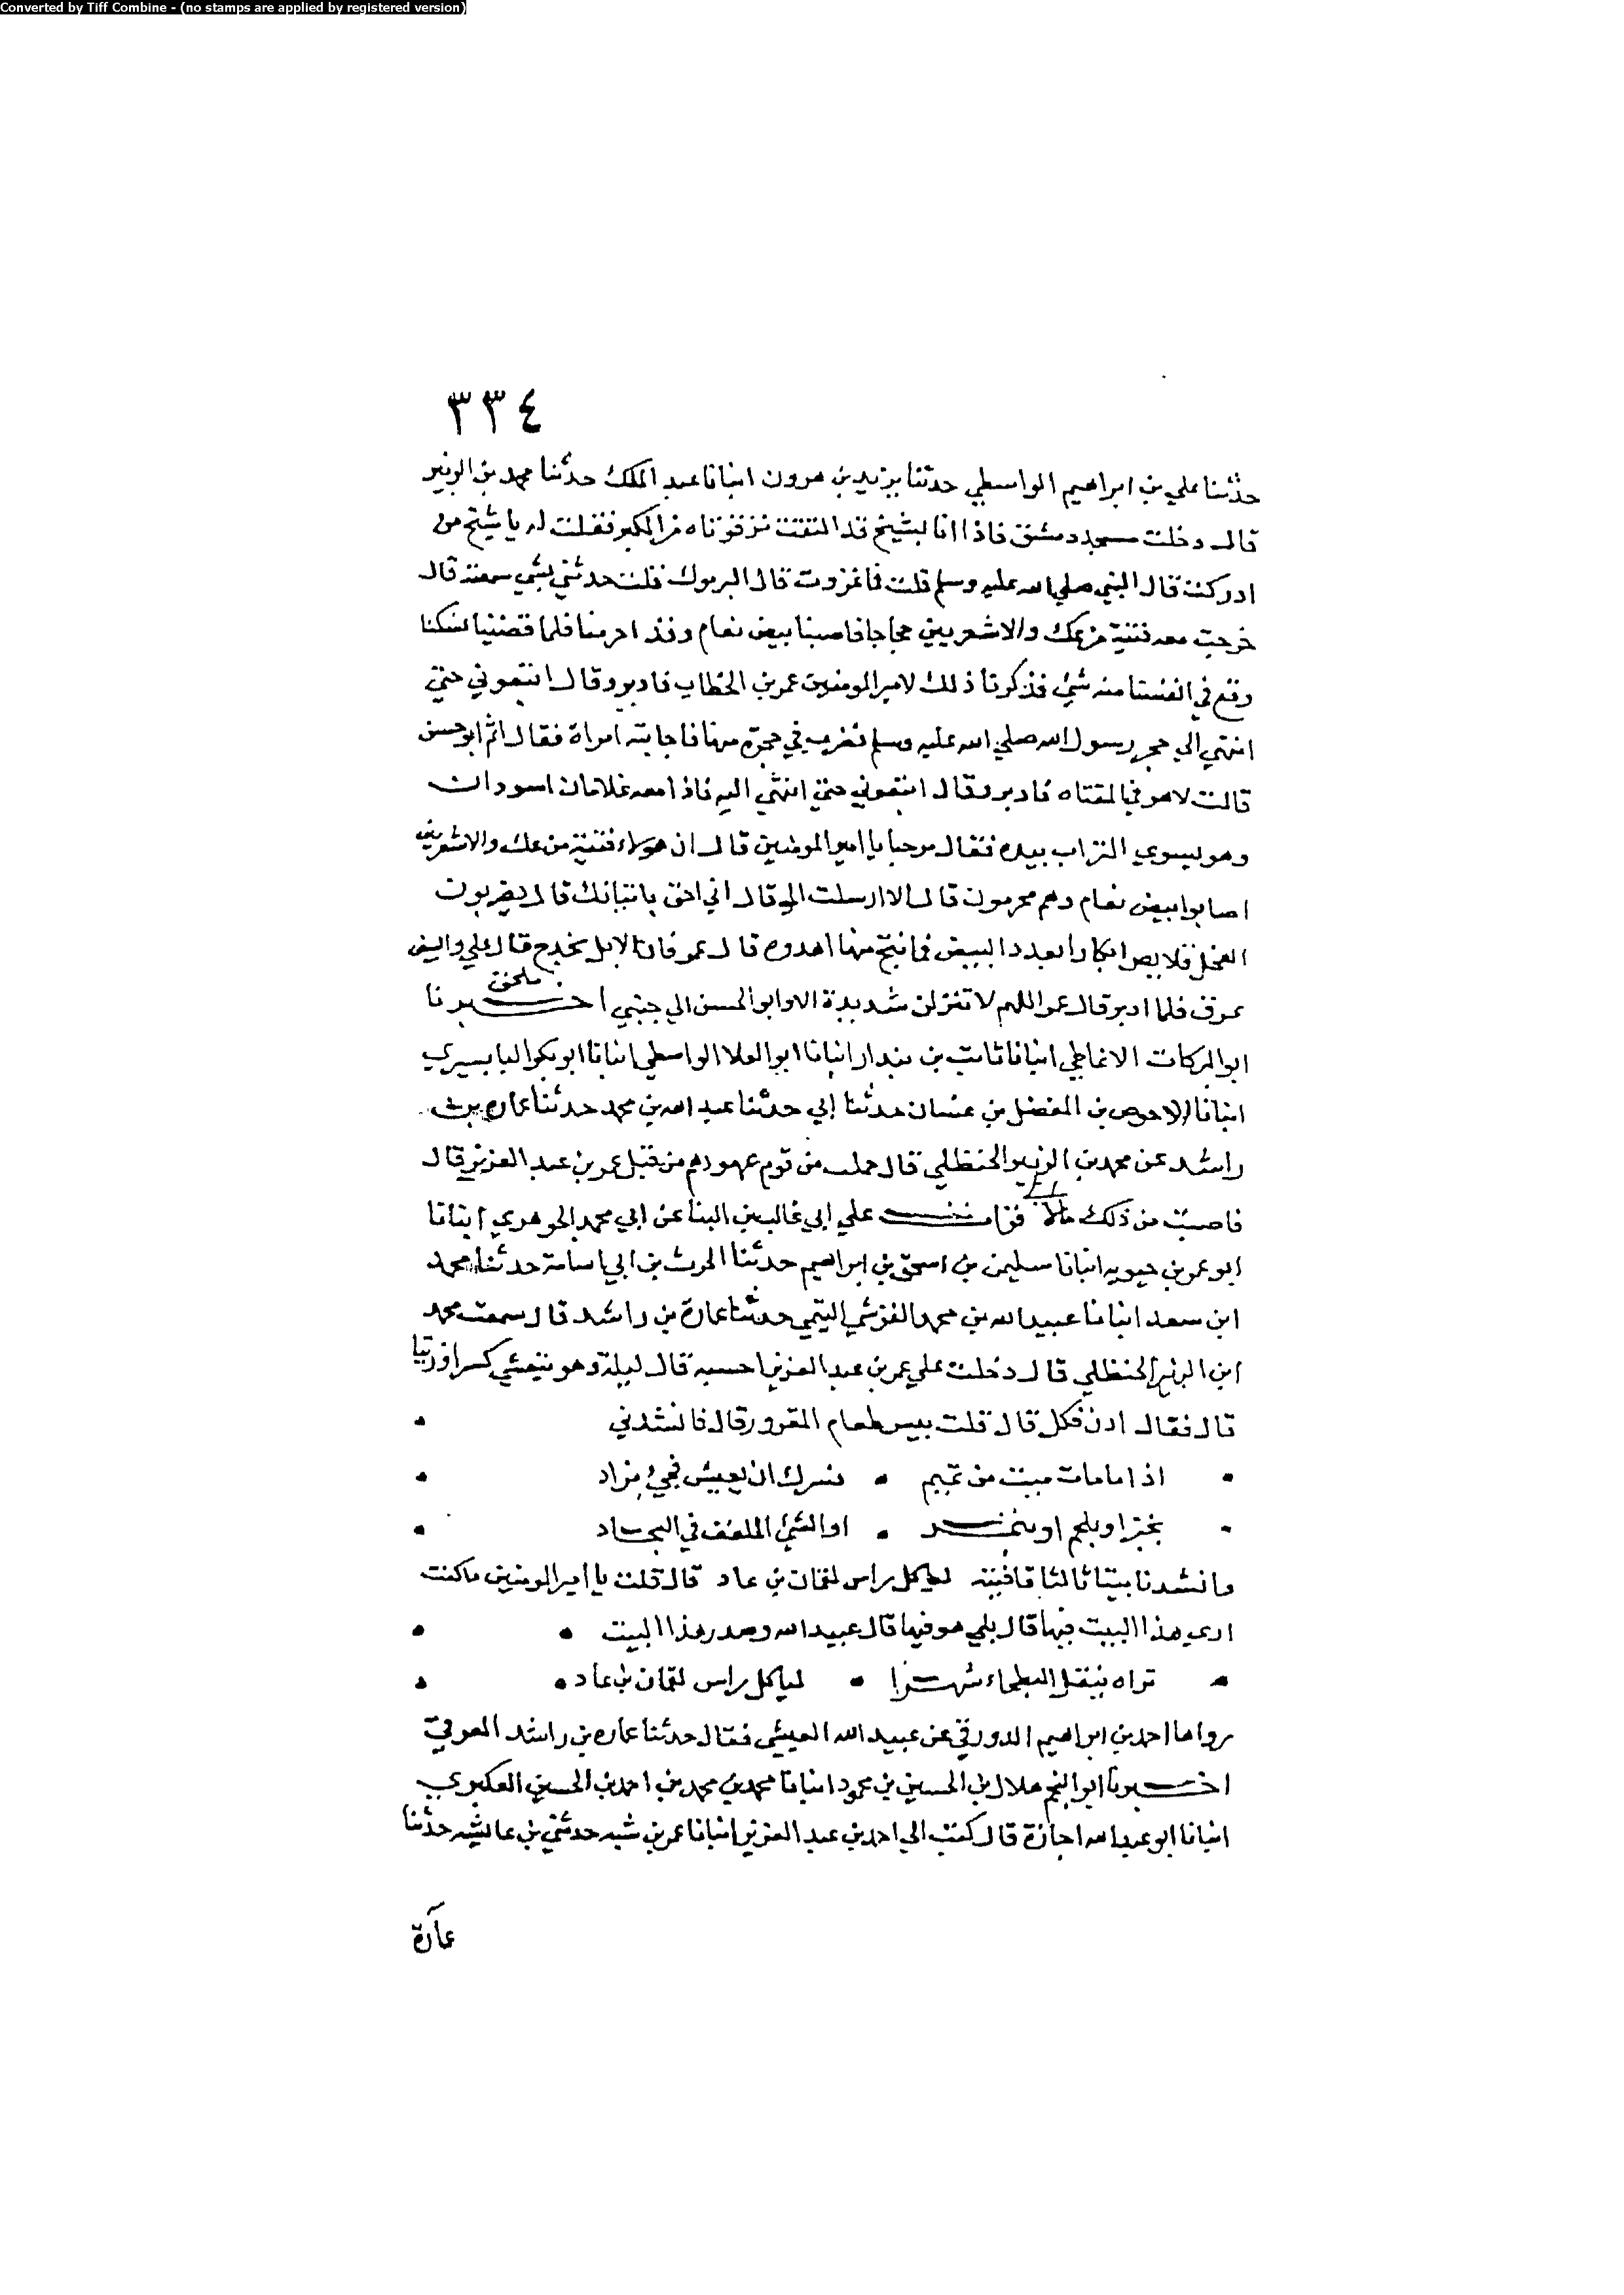 Converted by Tiff Combine - (no stamps are applied by registered version)
٣٣٤
حدثنا علي بن ابراهيم الواسطي حدثنا يزيد بن هرون انبانا عبد الملك حدثنا محمد بن الزبير
قال دخلت مسجد دمشق فاذا انا بشيخ قد التفت ترقوتاه من الكبر فقلت له يا شيخ من
ادركت قال النبي صلي الله عليه وسلم قلت فما غزوت قال اليرموك قلت حدثني بشي سمعته قال
خرجت معه فتية من عك والاشعريين حجاجا فاصبنا بيض نعام وقد احرمنا فلما قضينا نسكنا
وقع في انفسنا منه شي فذكرنا ذلك لامير المومنين عمر بن الخطاب فادبر وقال اتبعوني حتي
انتهي الي حجر رسول الله صلي الله عليه وسلم فضرب في حجرة منها فاجابته امراة فقال اثم ابو حسن
قالت لا هو في المقتاه فادبر وقال اتبعوني حتي انتهي اليه فاذا معه غلامان اسودان
وهو يسوي التراب بيده فقال مرحبا يا امير المومنين قال ان هولاء فتية من عك والاشعريين
اصابوا بيض نعام وهم محرمون قال الا ارسلت الي قال اني احق باتيانك قال يضربون
الفحل قلايص ابكارا بعدد البيض فما نتج منها اهدوه قال عمر فان الابل تخدج قال علي والبيض
ملحق
يمرق فلما ادبر قال عمر اللهم لا تنزلن شديدة الا وابو الحسن الي جنبي اخبرنا
ابو البركات الانماطي انبانا ثابت بن بندار انبانا ابو العلا الواسطي انبانا ابو بكر البابسيري
انبانا الاحوص بن المفضل بن غسان حدثنا ابي حدثنا عبيد الله بن محمد حدثنا عماره بن
راشد عن محمد بن الزبير الحنظلي قال حملت من قوم عهودهم من قبل عمر بن عبد العزيز قال
فاصبت من ذلك مالا قرات علي ابي غالب بن البنا عن ابي محمد الجوهري انبانا
ابو عمر بن حيويه انبانا سليمن بن اسحق بن ابراهيم حدثنا الحرث بن ابي اسامة حدثنا محمد
ابن سعد انبانا عبيد الله بن محمد القرشي التيمي حدثنا عمارة بن راشد قال سمعت محمد
ابن الزبير الحنظلي قال دخلت علي عمر بن عبد العزيز احسبه قال ليلة وهو يتعشي كسرا وزيتا
قال فقال ادن فكل قال قلت بيس طعام المقرور قال فانشدني
اذا ما مات ميت من تميم • فسرك ان يعيش فجئ بزاد
بخبز او بلحم او بتمر • او الشئ الملفف في البجاد
وانشدنا بيتا ثالثا قافيته لياكل راس لقمان بن عاد قال قلت يا امير المومنين ما كنت
اري هذا البيت فيها قال بلي هو فيها قال عبيد الله وصدر هذا البيت
تراه ينقل البطحاء شهرا • لياكل راس لقمان بن عاد
رواها احمد بن ابراهيم الدورقي عن عبيد الله العيشي فقال حدثنا عماره بن راشد
اخبرنا ابو النجم هلال بن الحسين بن محمود انبانا محمد بن محمد بن احمد بن الحسين العكبري
انبانا ابو عبد الله اجازة قال كتب الي احمد بن عبد العزيز انبانا عمر بن شبه حدثني بن عايشه حدثنا
عمارة